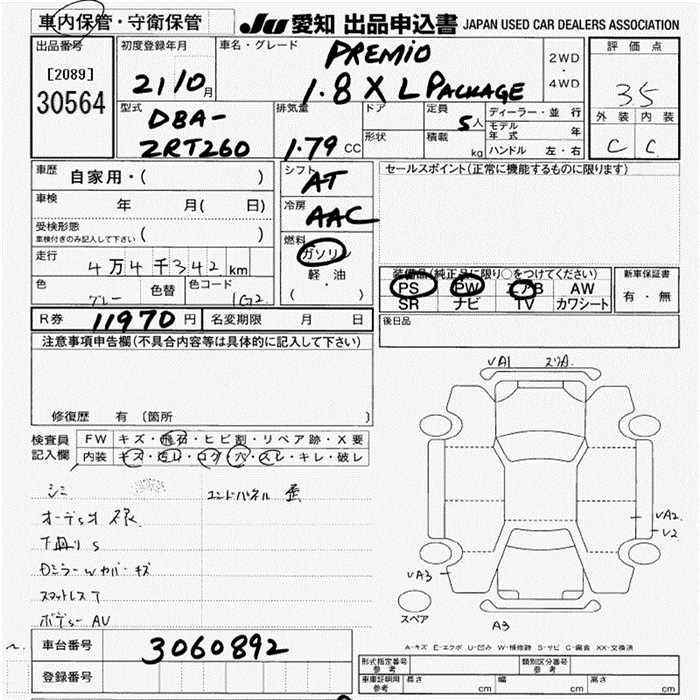 車内保管・守衛保管
JU 愛知 出品申込書 JAPAN USED CAR DEALERS ASSOCIATION
出品番号
[2089]
30564
初度登録年月
21/10月
車名・グレード
PREMIO
1.8 X L PACKAGE
2WD
・
4WD
評価点
3.5
外装 内装
C C
型式
DBA-
ZRT260
排気量
1.79 CC
ドア
形状
定員
5人
積載
kg
ディーラー・並行
モデル年式 年
ハンドル 左・右
車歴
自家用・( )
車検
年 月( 日)
受検形態
車検付きのみ記入して下さい ( )
走行
4万4千342km
色
グレー
色替
色コード
1G2
シフト
AT
冷房
AAC
燃料
ガソリン
軽油
( ・ )
セールスポイント(正常に機能するものに限ります)
装備品(純正品に限り○をつけてください)
PS PW エアB AW
SR ナビ TV カワシート
新車保証書
有・無
後日品
R券 11970円
名変期限 月 日
注意事項申告欄(不具合内容等は具体的に記入して下さい)
修復歴 有 〔箇所 〕
検査員記入欄
FW キズ・飛石・ヒビ割・リペア跡・X要
内装 キズ・汚レ・コゲ・穴・スレ・キレ・破レ
シミ
エンドパネル 歪
下廻りS
ドミラーWカバーキズ
スマットレスT
ボデーAU
VA1
VA2
V2
VA3
A3
スペア
A-キズ E-エクボ U-凹み W-補修跡 S-サビ C-腐食 XX-交換済
車台番号
3060892
登録番号
形式指定番号
参考
類別区分番号
参考
車庫証明用
参考
長さ cm 幅 cm 高さ cm